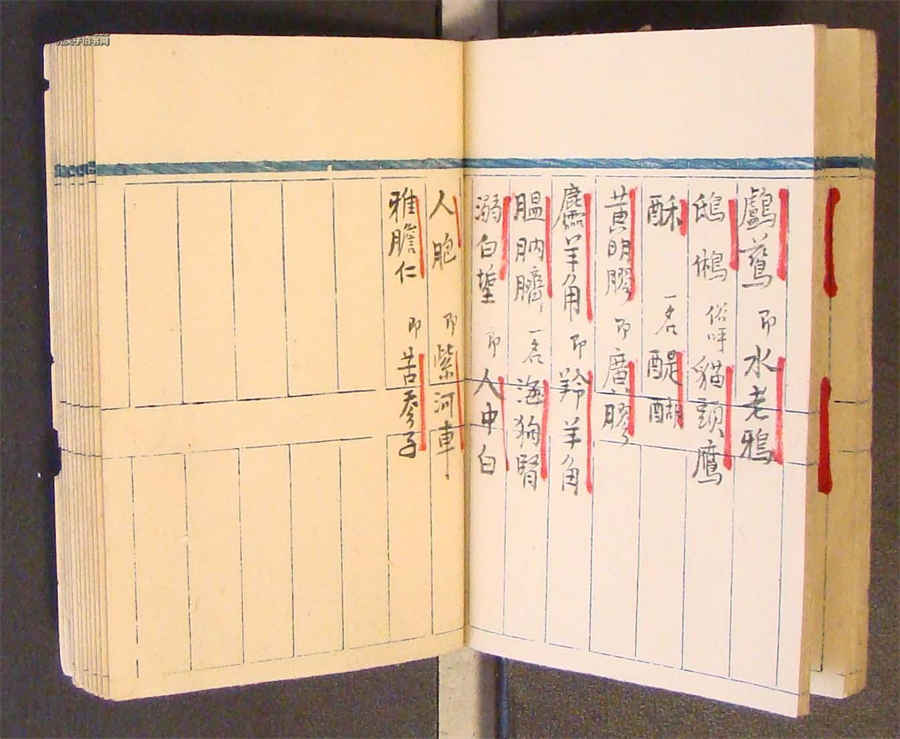 鸕鶿 即水老鴉
鴟鵂 俗呼貓頭鷹
酥 一名醍醐
黄明膠 即廣膠
麢羊角 即羚羊角
膃肭臍 一名海狗腎
溺白垽 即人中白
人胞 即紫河車
雅膽仁 即苦參子